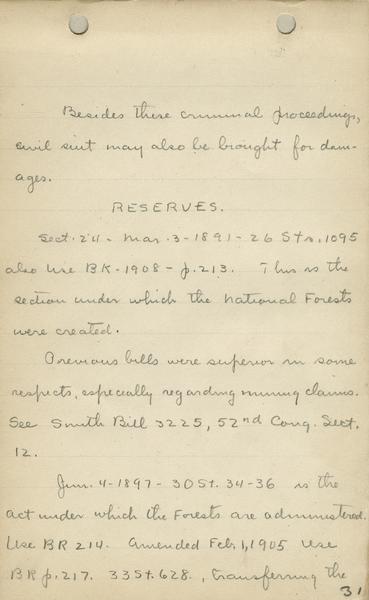 Besides these criminal proceedings,
civil suit may also be brought for dam-
ages.
RESERVES.
Sect. 24 - Mar. 3 - 1891 - 26 Sts. 1095
also Use BK - 1908 - p. 213. This is the
section under which the National Forests
were created.
Previous bills were superior in some
respects, especially regarding mining claims.
See Smith Bill 3225, 52nd Cong. Sect.
12.
Jun. 4 - 1897 - 30 St. 34-36 is the
act under which the Forests are administered.
Use BR 214. Amended Feb. 1, 1905 Use
BR p. 217. 33 St. 628., transferring the
31